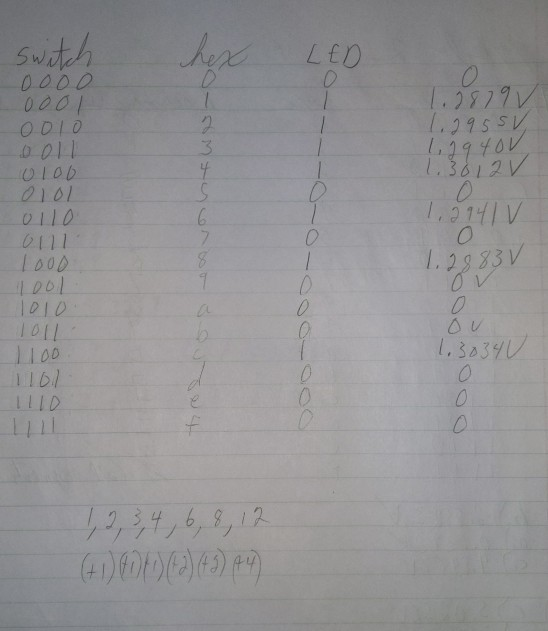 switch hex LED
0000 0 0 0
0001 1 1 1.2879V
0010 2 1 1.2955V
0011 3 1 1.2940V
0100 4 1 1.3012V
0101 5 0 0
0110 6 1 1.2941V
0111 7 0 0
1000 8 1 1.2883V
1001 9 0 0V
1010 a 0 0
1011 b 0 0V
1100 c 1 1.3034V
1101 d 0 0
1110 e 0 0
1111 f 0 0
1, 2, 3, 4, 6, 8, 12
(+1)(+1)(+1)(+2)(+2)(+4)